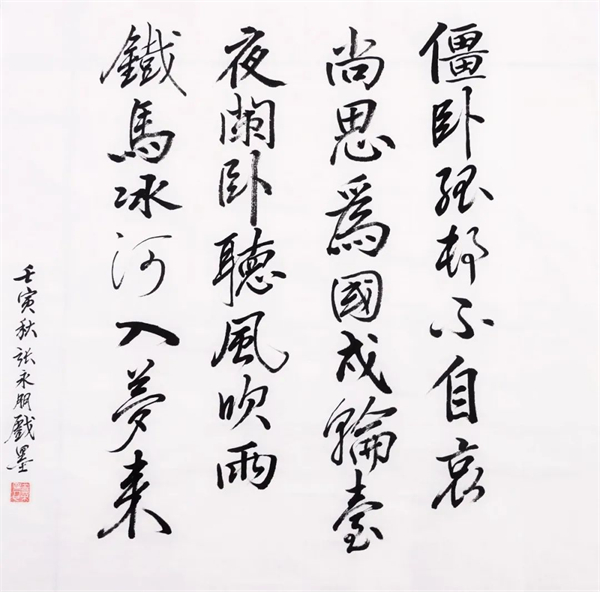 僵卧孤邨不自哀
尚思爲國戍輪臺
夜闌卧聽風吹雨
鐵馬冰河入夢来
壬寅秋張永朋戲墨